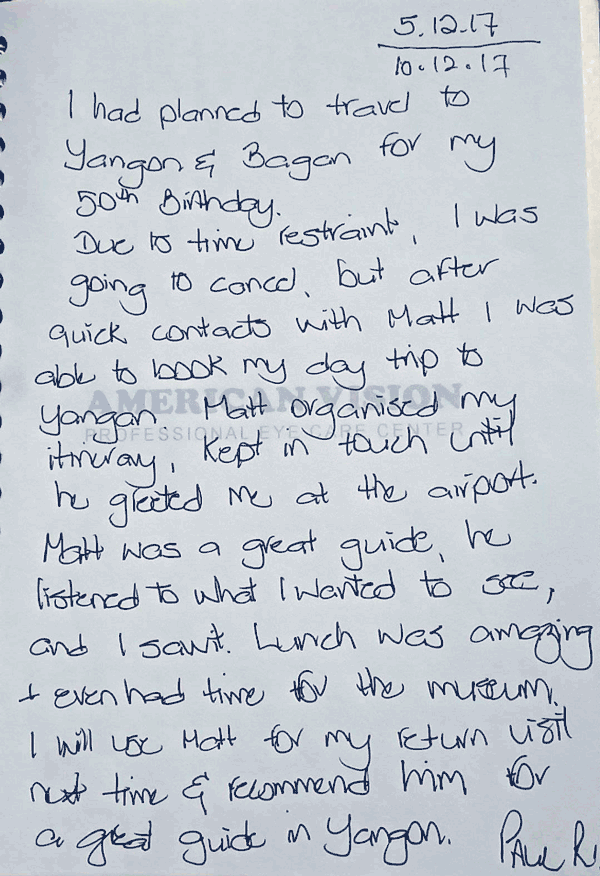 5.12.17
10.12.17
I had planned to travel to
Yangon & Bagan for my
50th Birthday.
Due to time restraint, I was
going to cancel, but after
quick contacts with Matt I was
able to book my day trip to
AMERICAN VISION
Yangon. Matt organised my
PROFESSIONAL EYE CARE CENTER
itineray, kept in touch until
he greeted me at the airport.
Matt was a great guide, he
listened to what I wanted to see,
and I saw it. Lunch was amazing
+ even had time for the museum.
I will use Matt for my return visit
next time & recommend him for
a great guide in Yangon. PAUL R.